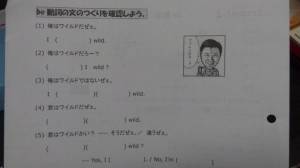 動詞の文のつくりを確認しよう。
(1) 俺はワイルドだぜぇ。
I ( ) wild.
(2) 俺はワイルドだろ～?
( ) I wild ?
(3) 俺はワイルドではないぜぇ。
I ( )( ) wild.
(4) 君はワイルドだぜぇ。
( )( ) wild.
(5) 君はワイルドかい? ― そうだぜぇ。／ 違うぜぇ。
( )( ) wild?
― Yes, I ( ). / No, I'm (